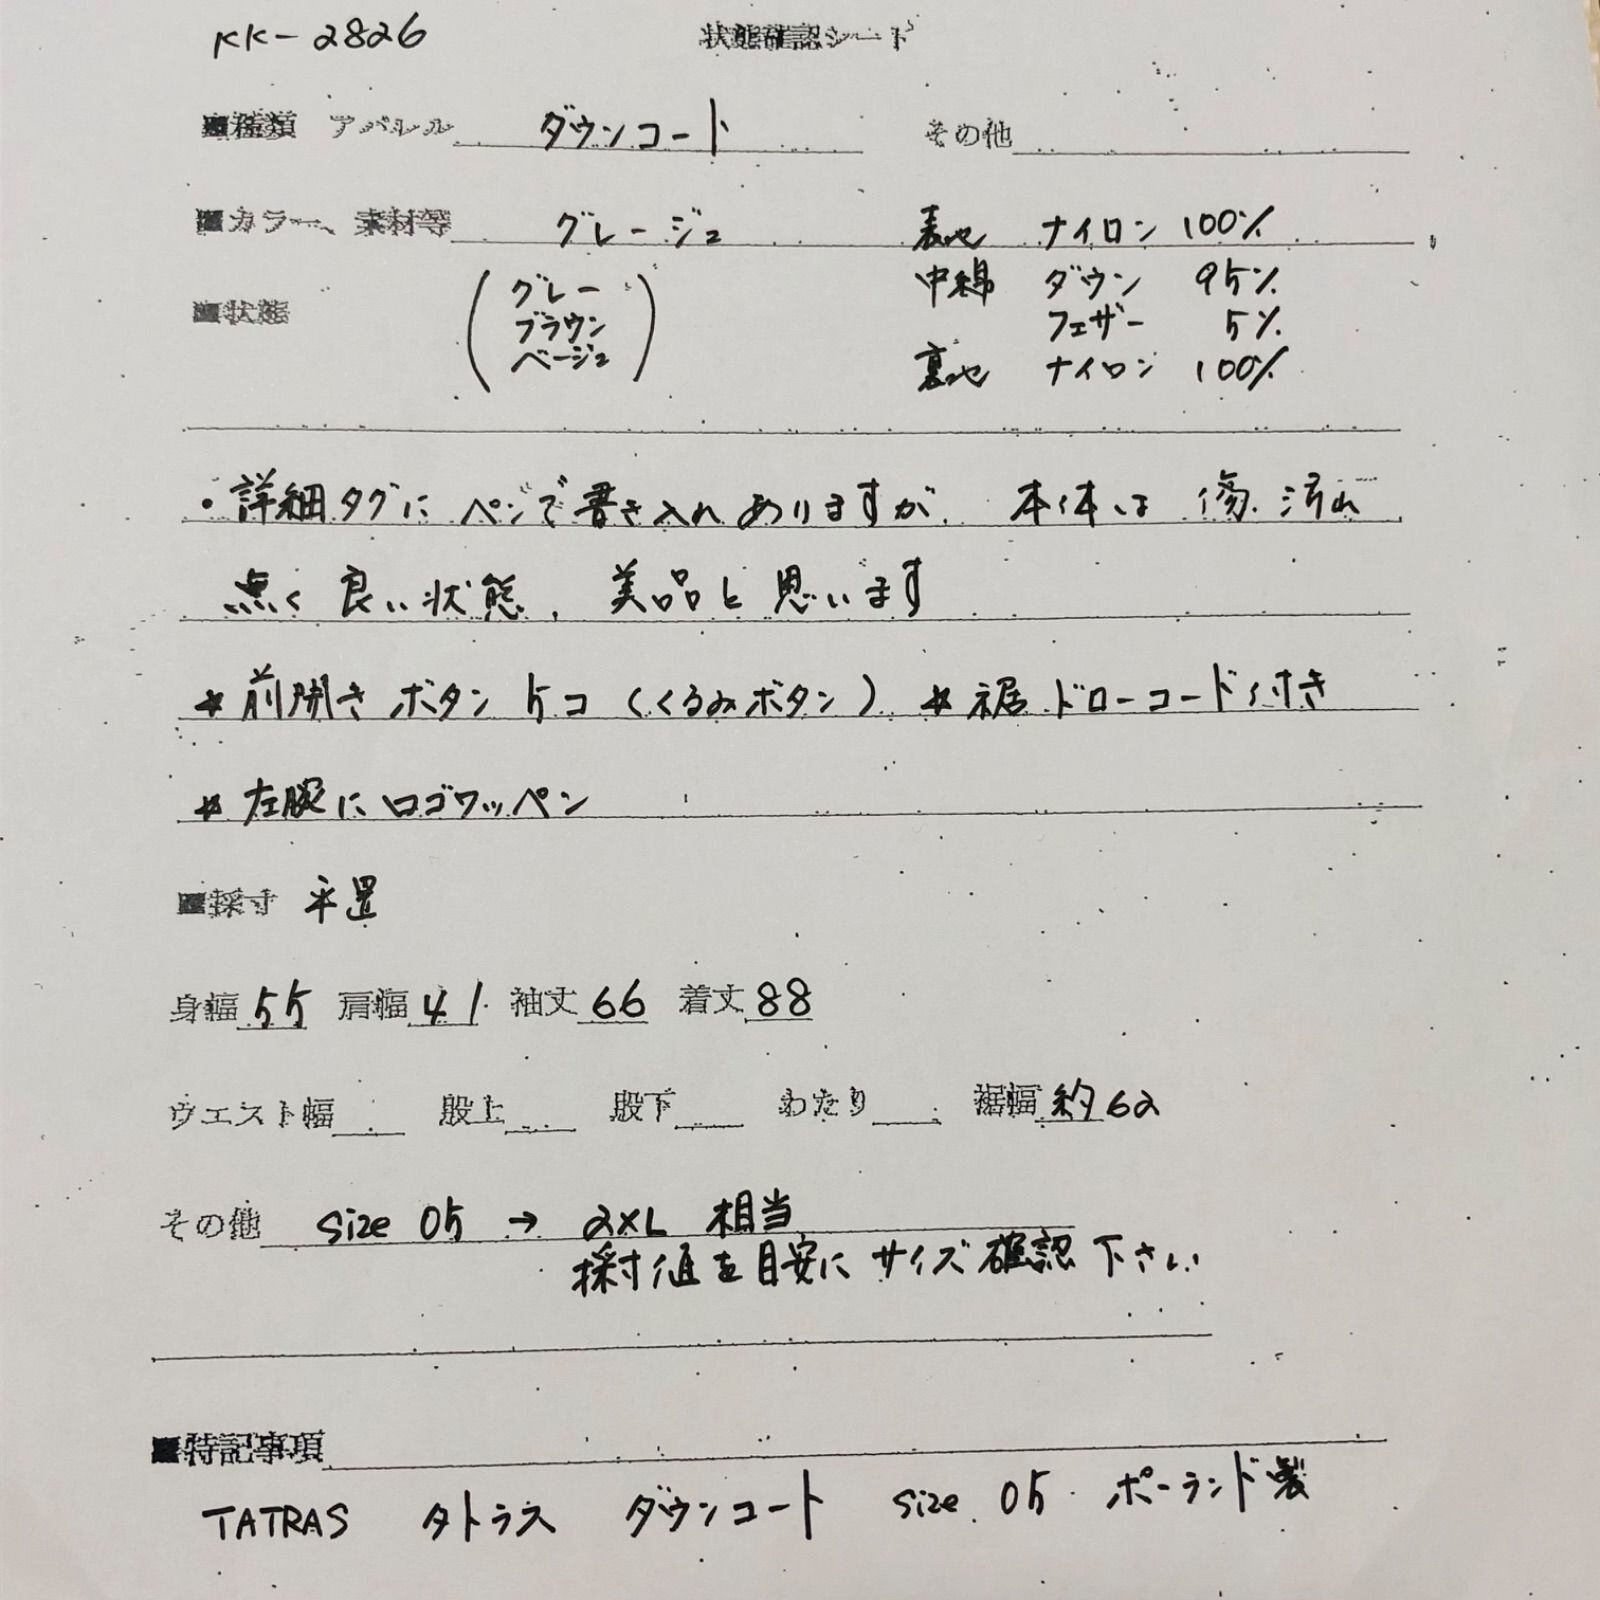 KK-2826 状態確認シート
■種類 アパレル ダウンコート その他
■カラー、素材等 グレージュ 表地 ナイロン 100%
■状態 (グレー ブラウン ベージュ) 中綿 ダウン 95%
フェザー 5%
裏地 ナイロン 100%
・詳細タグに ペンで書き入れありますが、本体は 傷.汚れ
無く 良い状態、美品と思います
* 前開き ボタン 5コ (くるみボタン) * 裾 ドローコード付き
* 左腕に ロゴワッペン
■採寸 平置
身幅 55 肩幅 41 袖丈 66 着丈 88
ウエスト幅 股上 股下 わたり 裾幅 約62
その他 size 05 → 2XL 相当
採寸値を目安に サイズ確認 下さい
■特記事項
TATRAS タトラス ダウンコート size 05 ポーランド製